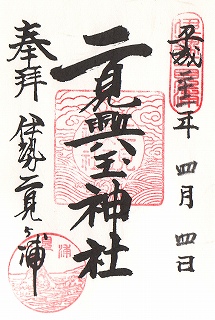 平成二十二年 四月 四日
二見興玉神社
奉拝 伊勢二見ヶ浦